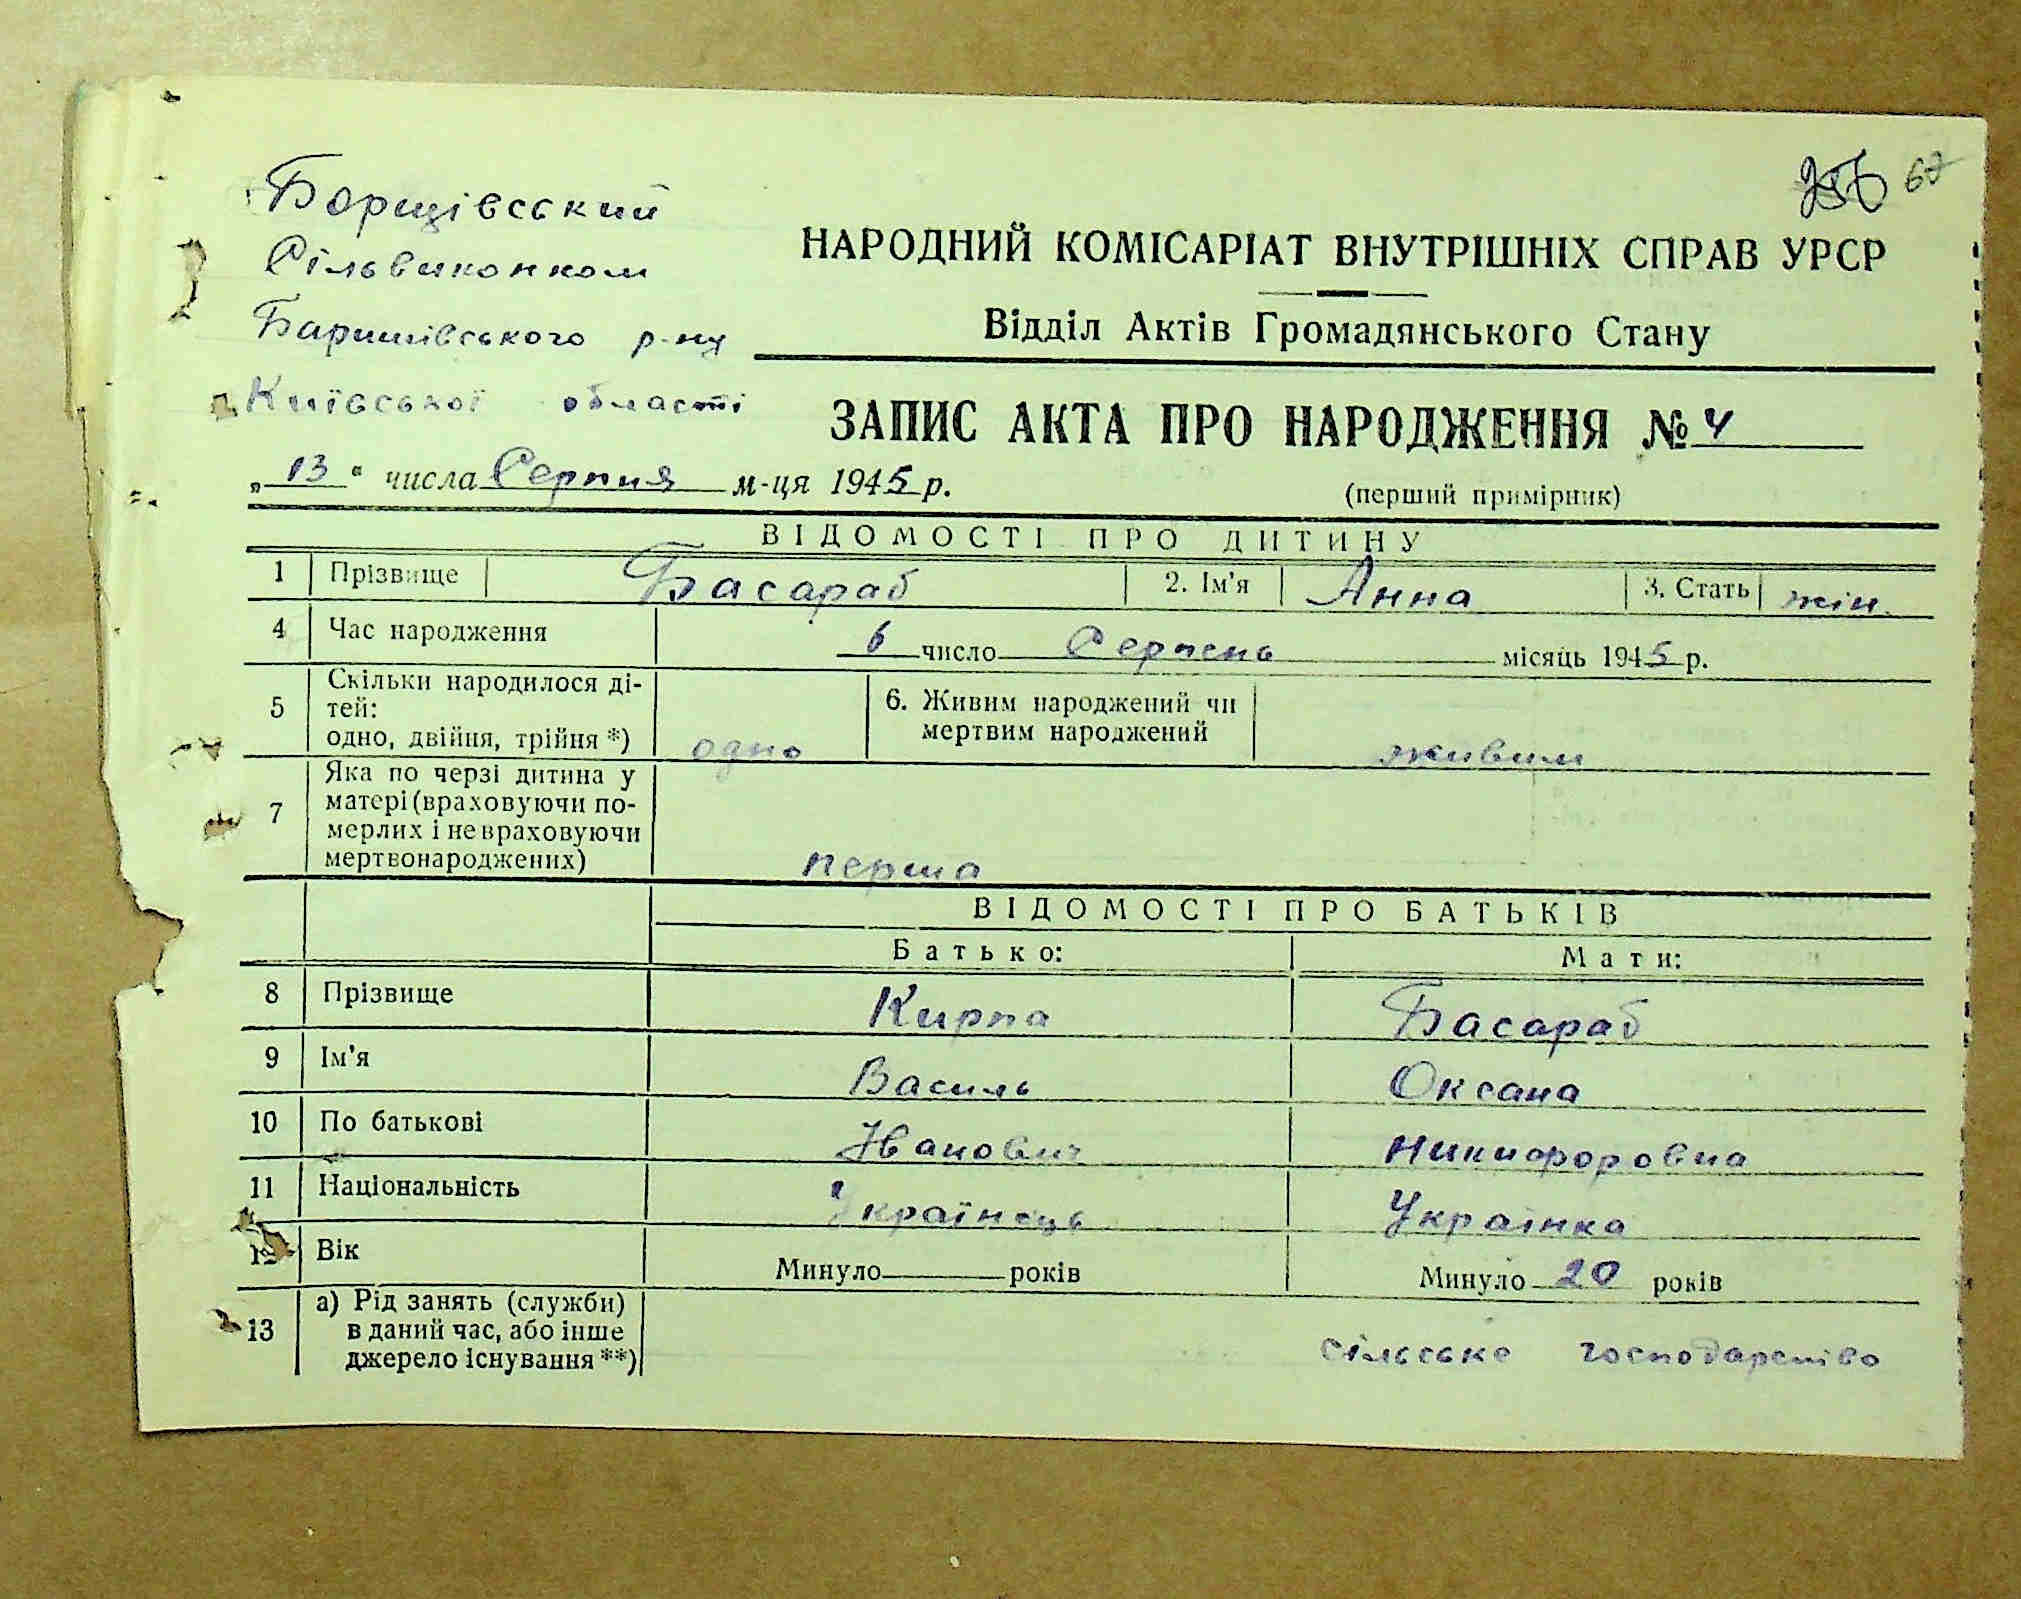 Борщівський
Сільвиконком
Баришівського р-ну
Київської області
67
НАРОДНИЙ КОМІСАРІАТ ВНУТРІШНІХ СПРАВ УРСР
Відділ Актів Громадянського Стану
ЗАПИС АКТА ПРО НАРОДЖЕННЯ № 4
„13" числа Серпня м-ця 1945 р.
(перший примірник)
ВІДОМОСТІ ПРО ДИТИНУ
1 Прізвище Басараб 2. Ім'я Анна 3. Стать жін.
4 Час народження 6 число Серпень місяць 1945 р.
5 Скільки народилося ді-
тей:
одно, двійня, трійня *) одно
6. Живим народжений чи
мертвим народжений живим
7 Яка по черзі дитина у
матері (враховуючи по-
мерлих і не враховуючи
мертвонароджених) перша
ВІДОМОСТІ ПРО БАТЬКІВ
Батько: Мати:
8 Прізвище Кирпа Басараб
9 Ім'я Василь Оксана
10 По батькові Іванович Никифоровна
11 Національність Українець Українка
12 Вік Минуло років Минуло 20 років
13 а) Рід занять (служби)
в даний час, або інше
джерело існування **) сільське господарство